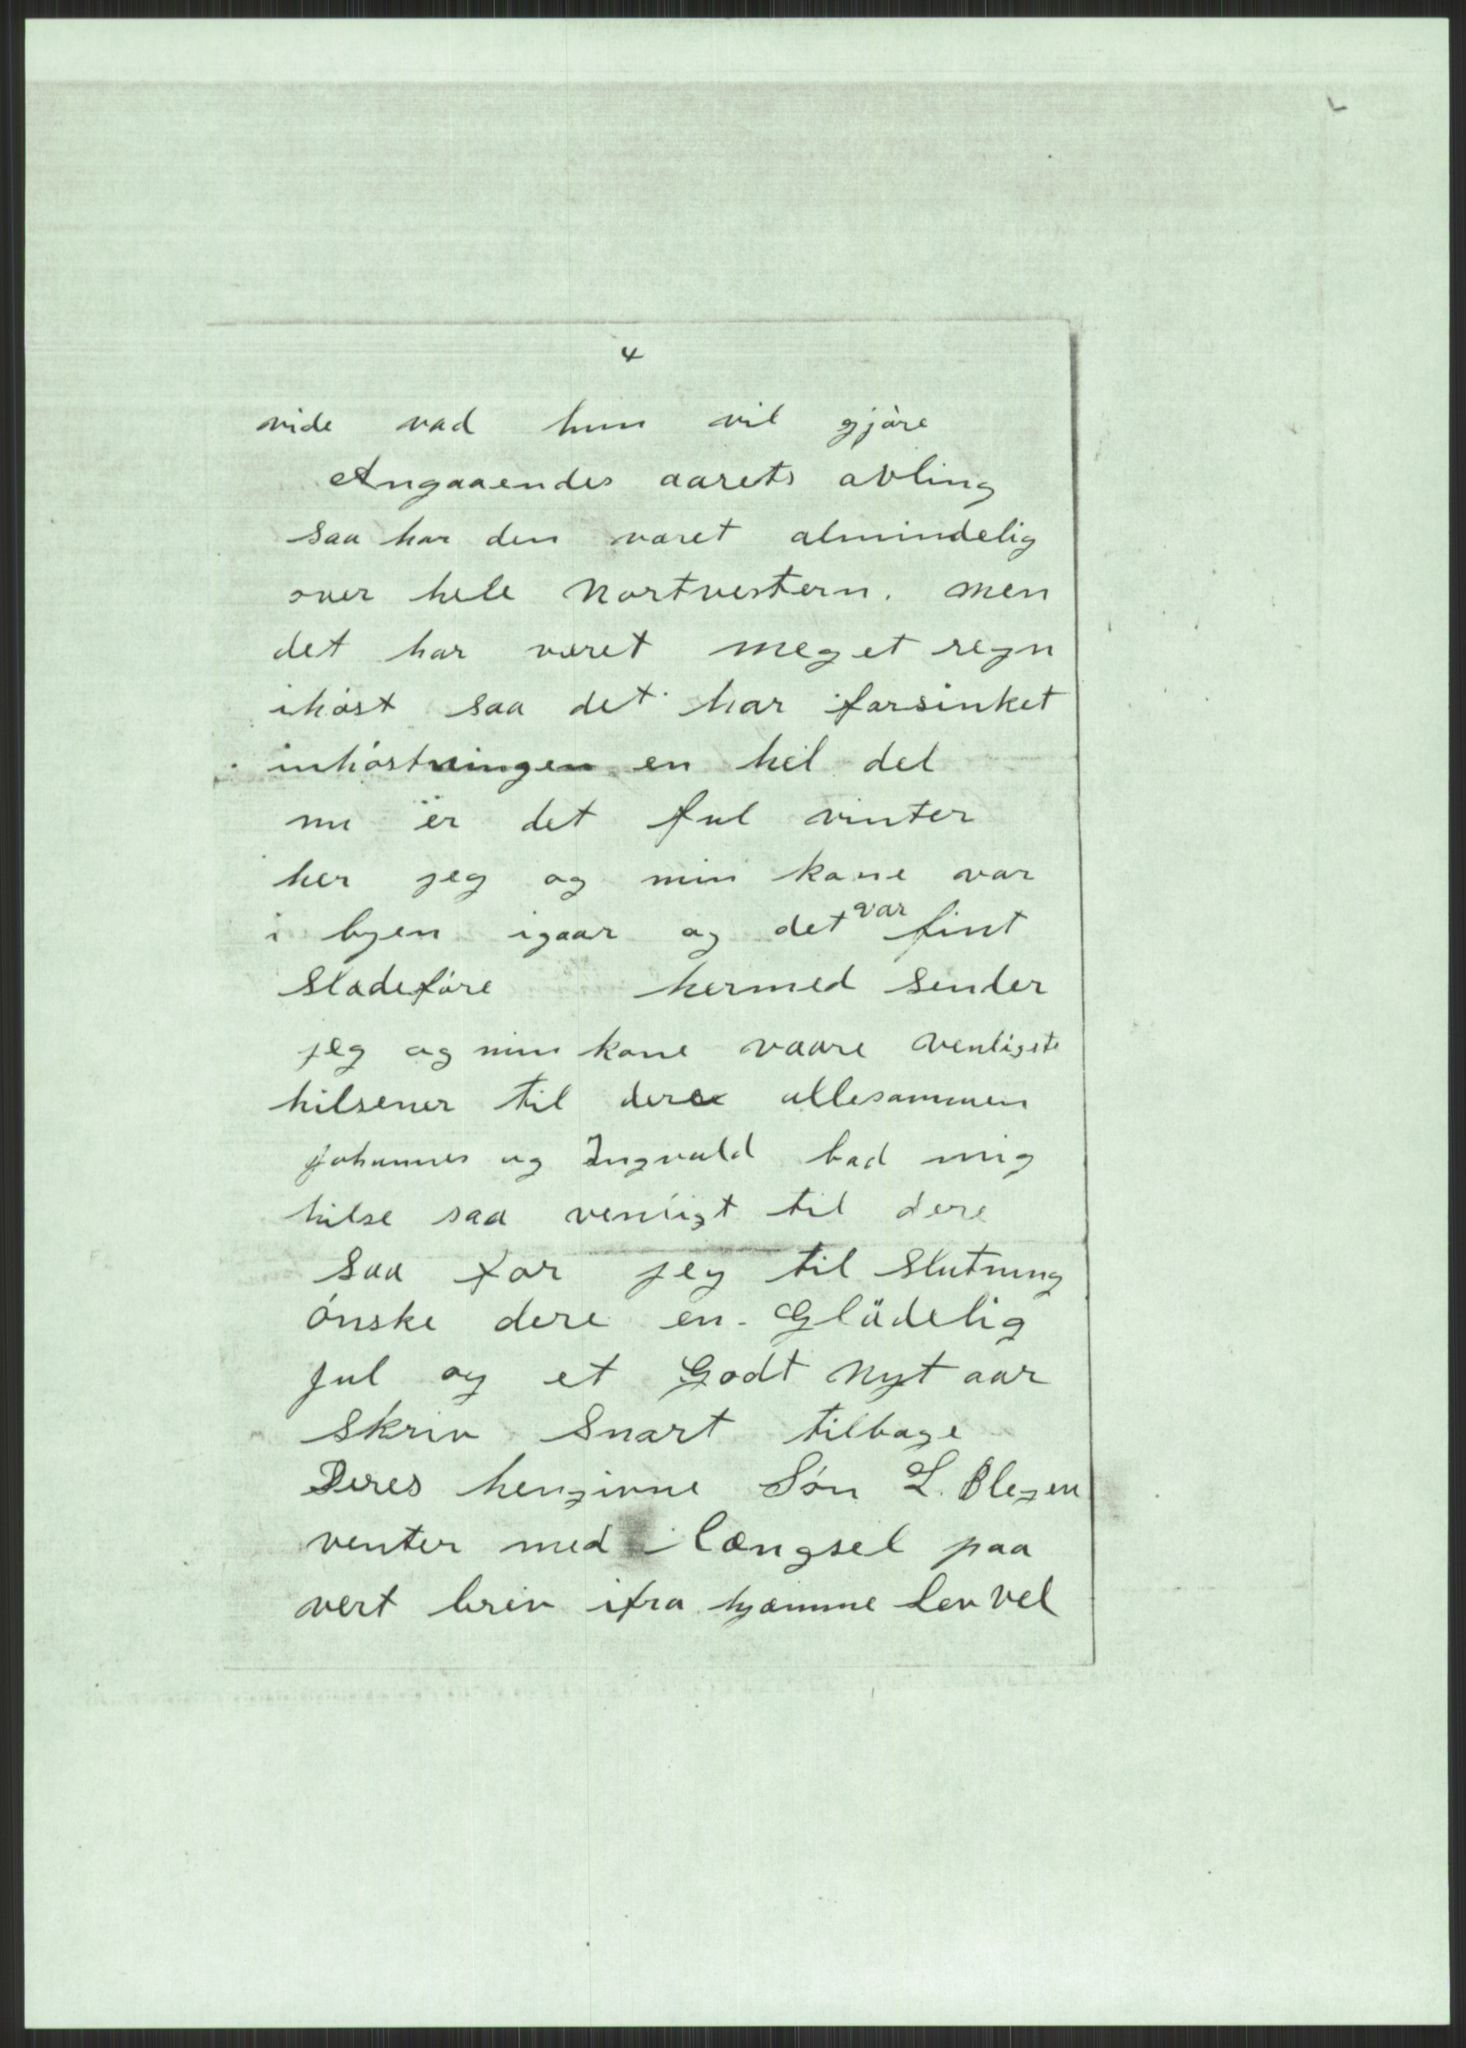 4
vide vad hun vil gjøre
Angaaendes aarets avling
saa har den været almindelig
over hele Nortvestern. men
det har været meget regn
ihøst saa det har forsinket
inhøstningen en hel del
nu er det ful vinter
her jeg og min kone var
i byen igaar og det var fint
Slædeføre hermed sender
jeg og min kone vaare venligste
hilsener til dere allesammen
Johannes og Ingvald bad mig
hilse saa venligt til dere
Saa faar jeg til Slutning
ønske dere en Glädelig
Jul og et Godt Nyt aar
Skriv Snart tilbage
Deres hengivne Søn L. Blegen
venter med længsel paa
vert brev ifra hjæmme Lev vel